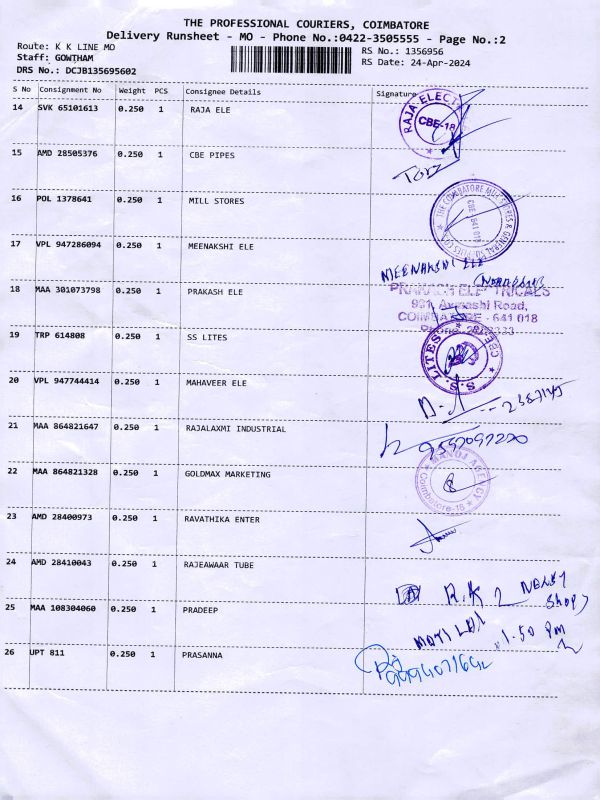 THE PROFESSIONAL COURIERS, COIMBATORE
Delivery Runsheet - MO - Phone No.:0422-3505555 - Page No.:2
Route: K K LINE MO
Staff: GOWTHAM
DRS No.: DCJB135695602
RS No.: 1356956
RS Date: 24-Apr-2024
S No Consignment No Weight PCS Consignee Details Signature
14 SVK 65101613 0.250 1 RAJA ELE
RAJA ELECT
CBE-18
15 AMD 28505376 0.250 1 CBE PIPES
16 POL 1378641 0.250 1 MILL STORES
THE COIMBATORE MILL STORES & GENERAL SUPPLIERS
CBE-641 018
17 VPL 947286094 0.250 1 MEENAKSHI ELE
MEENAKSHI ELE
18 MAA 301073798 0.250 1 PRAKASH ELE
PRAKASH ELECTRICALS
Avinashi Road,
COIMBATORE - 641 018
19 TRP 614808 0.250 1 SS LITES
S.S. LITES CBE
20 VPL 947744414 0.250 1 MAHAVEER ELE
21 MAA 864821647 0.250 1 RAJALAXMI INDUSTRIAL
22 MAA 864821328 0.250 1 GOLDMAX MARKETING
MANOJ AGENCY
Coimbatore-18
23 AMD 28400973 0.250 1 RAVATHIKA ENTER
24 AMD 28410043 0.250 1 RAJEAWAAR TUBE
R.K
SHOP
25 MAA 108304060 0.250 1 PRADEEP
1.50 PM
26 UPT 811 0.250 1 PRASANNA